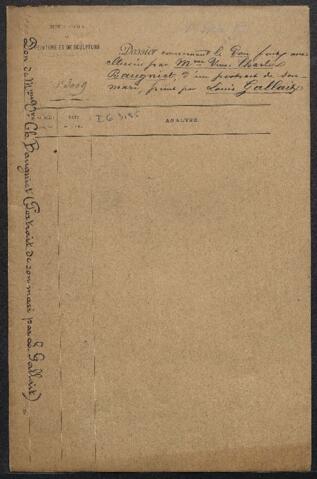 PEINTURE ET DE SCULPTURE
Dossier concernant le Don fait au
Musée par Mme Vve Charles
Baugniet, d'un portrait de son
mari, peint par Louis Gallait
3009
ANALYSE.
Don de Mme Vve Ch. Baugniet (Portrait de son mari par L. Gallait)